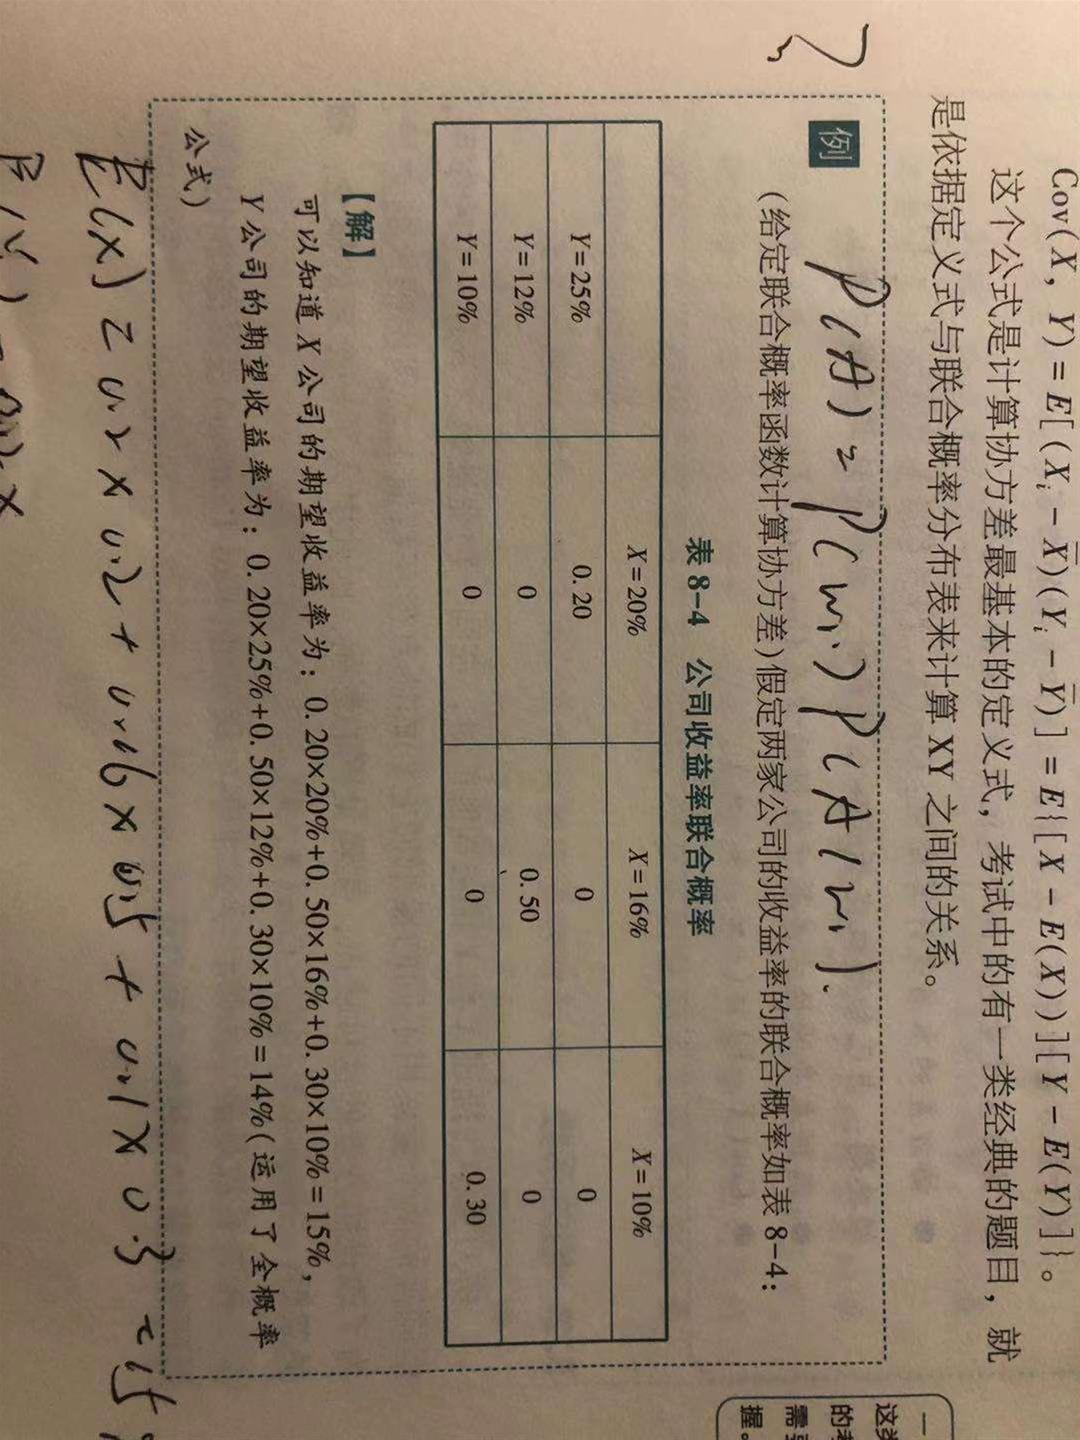 Cov(X, Y) = E[(Xᵢ - X̄)(Yᵢ - Ȳ)] = E{[X - E(X)][Y - E(Y)]}。
这个公式是计算协方差最基本的定义式，考试中的有一类经典的题目，就
是依据定义式与联合概率分布表来计算 XY 之间的关系。
P(A) = P(wᵢ) P(A|wᵢ).
例
(给定联合概率函数计算协方差)假定两家公司的收益率的联合概率如表 8-4：
表 8-4 公司收益率联合概率
X=20% X=16% X=10%
Y=25% 0.20 0 0
Y=12% 0 0.50 0
Y=10% 0 0 0.30
【解】
可以知道 X 公司的期望收益率为：0.20×20%+0.50×16%+0.30×10%=15%，
Y 公司的期望收益率为：0.20×25%+0.50×12%+0.30×10%=14%(运用了全概率
公式)
E(X) = 0.2 × 0.2 + 0.16 × 0.5 + 0.1 × 0.3 = 15
一
这类
的考
需要
握。